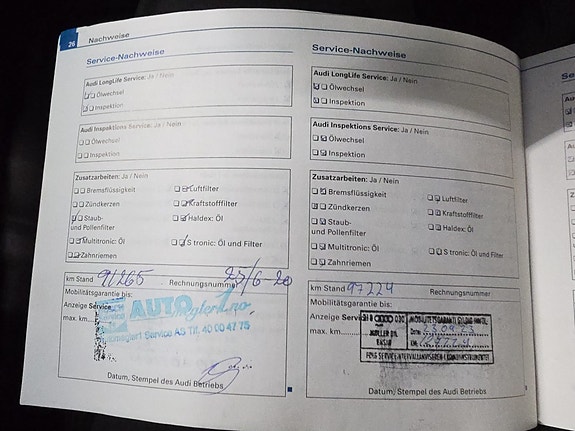 26
Nachweise
Service-Nachweise
Audi LongLife Service: Ja / Nein
Ölwechsel
Inspektion
Audi Inspektions Service: Ja / Nein
Ölwechsel
Inspektion
Zusatzarbeiten: Ja / Nein
Bremsflüssigkeit
Luftfilter
Zündkerzen
Kraftstofffilter
Staub-
und Pollenfilter
Haldex: Öl
Multitronic: Öl
S tronic: Öl und Filter
Zahnriemen
km Stand 91265 Rechnungsnummer 25/6-20
Mobilitätsgarantie bis:
Anzeige Service
max. km
AUTO
Service AS Tlf. 40 00 47 75
Datum, Stempel des Audi Betriebs
Service-Nachweise
Audi LongLife Service: Ja / Nein
Ölwechsel
Inspektion
Audi Inspektions Service: Ja / Nein
Ölwechsel
Inspektion
Zusatzarbeiten: Ja / Nein
Bremsflüssigkeit
Luftfilter
Zündkerzen
Kraftstofffilter
Staub-
und Pollenfilter
Haldex: Öl
Multitronic: Öl
S tronic: Öl und Filter
Zahnriemen
km Stand 97224
Rechnungsnummer
Mobilitätsgarantie bis:
Anzeige Service
max. km
Datum, Stempel des Audi Betriebs